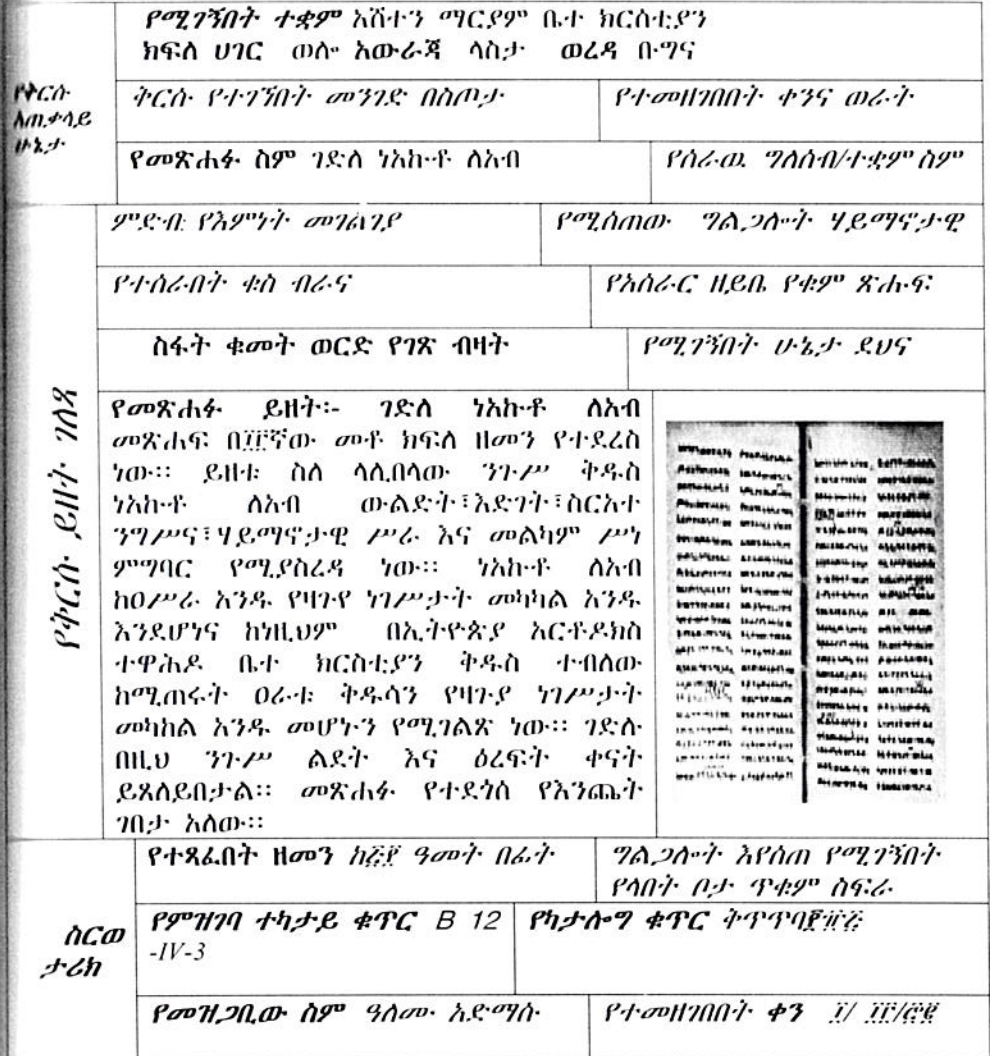 የሚገኝበት ተቋም አሸተን ማርያም ቤተ ክርስቲያን
ክፍለ ሀገር ወሎ አውራጃ ላስታ ወረዳ ቡግና
የቅርሱ
አጠቃላይ
ሁኔታ
ቅርሱ የተገኘበት መንገድ በስጦታ
የተመዘገበበት ቀንና ወራት
የመጽሐፉ ስም ገድለ ነአኩቶ ለአብ
የሰራዉ ግለሰብ/ተቋም ስም
ምድብ: የእምነት መገልገያ
የሚሰጠው ግልጋሎት ሃይማኖታዊ
የተሰራበት ቁስ ብራና
የአሰራር ዘይቤ የቁም ጽሑፍ
ስፋት ቁመት ወርድ የገጽ ብዛት
የሚገኝበት ሁኔታ ደህና
የቅርሱ ይዘት ገለጻ
የመጽሐፉ ይዘት፡- ገድለ ነአኩቶ ለአብ
መጽሐፍ በ፲፫ኛው መቶ ክፍለ ዘመን የተደረሰ
ነው፡፡ ይዘቱ ስለ ላሊበላው ንጉሥ ቅዱስ
ነአኩቶ ለአብ ውልድት፣እድገት፣ስርአተ
ንግሥና፣ሃይማኖታዊ ሥራ እና መልካም ሥነ
ምግባር የሚያስረዳ ነው፡፡ ነአኩቶ ለአብ
ከዐሥራ አንዱ የዛጉየ ነገሥታት መካካል አንዱ
እንደሆነና ከነዚህም በኢትዮጵያ አርቶዶክስ
ተዋሕዶ ቤተ ክርስቲያን ቅዱስ ተብለው
ከሚጠሩት ዐራቱ ቅዱሳን የዛጉያ ነገሥታት
መካከል አንዱ መሆኑን የሚገልጽ ነው፡፡ ገድሉ
በዚህ ንጉሥ ልደት እና ዕረፍት ቀናት
ይጸለይበታል፡፡ መጽሐፉ የተደጎሰ የእንጨት
ገበታ አለው፡፡
የተጻፈበት ዘመን ዓመት በፊት
ግልጋሎት እየሰጠ የሚገኝበት
የላበት ቦታ ጥቁም ስፍራ
ስርወ
ታሪክ
የምዝገባ ተካታይ ቁጥር B 12
-IV-3
የካታሎግ ቁጥር
የመዝጋቢው ስም ዓለሙ አድማሱ
የተመዘገበበት ቀን